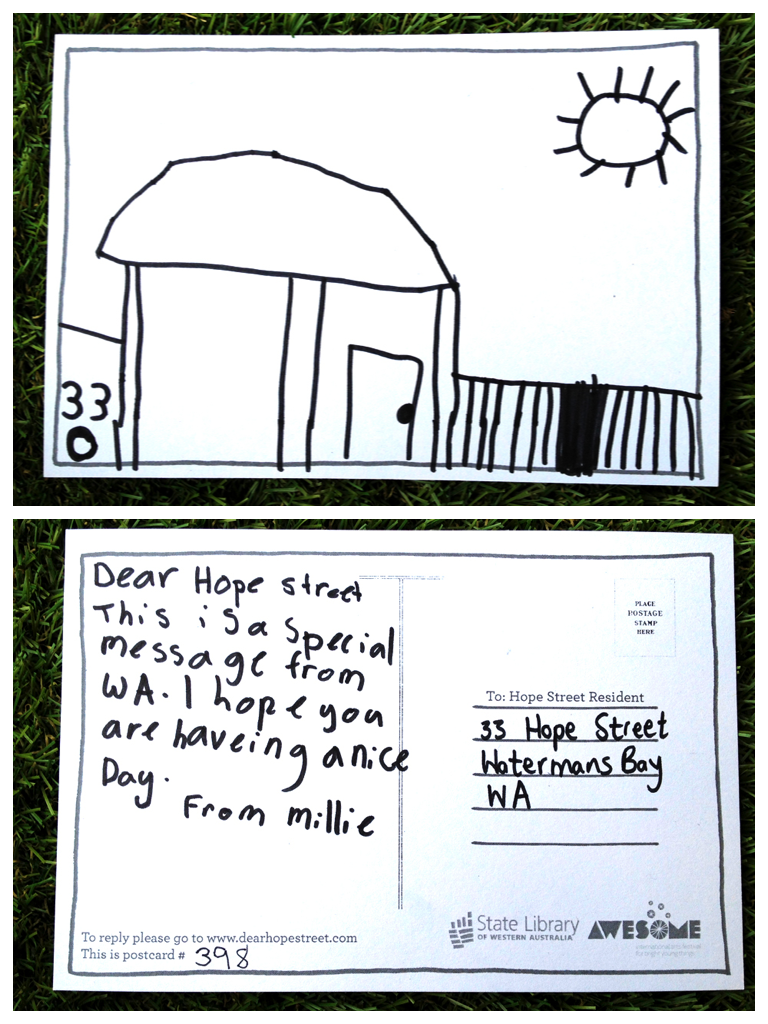 33
Dear Hope street
This is a special
message from
WA. I hope you
are haveing a nice
Day.
From millie
PLACE
POSTAGE
STAMP
HERE
To: Hope Street Resident
33 Hope Street
Watermans Bay
WA
To reply please go to www.dearhopestreet.com
This is postcard # 398
State Library
OF WESTERN AUSTRALIA
AWESOME
international arts festival
for bright young things